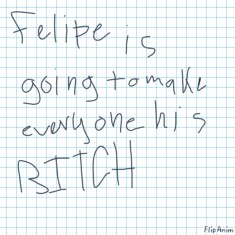 Felipe is
going to make
everyone his
BITCH
FlipAnim